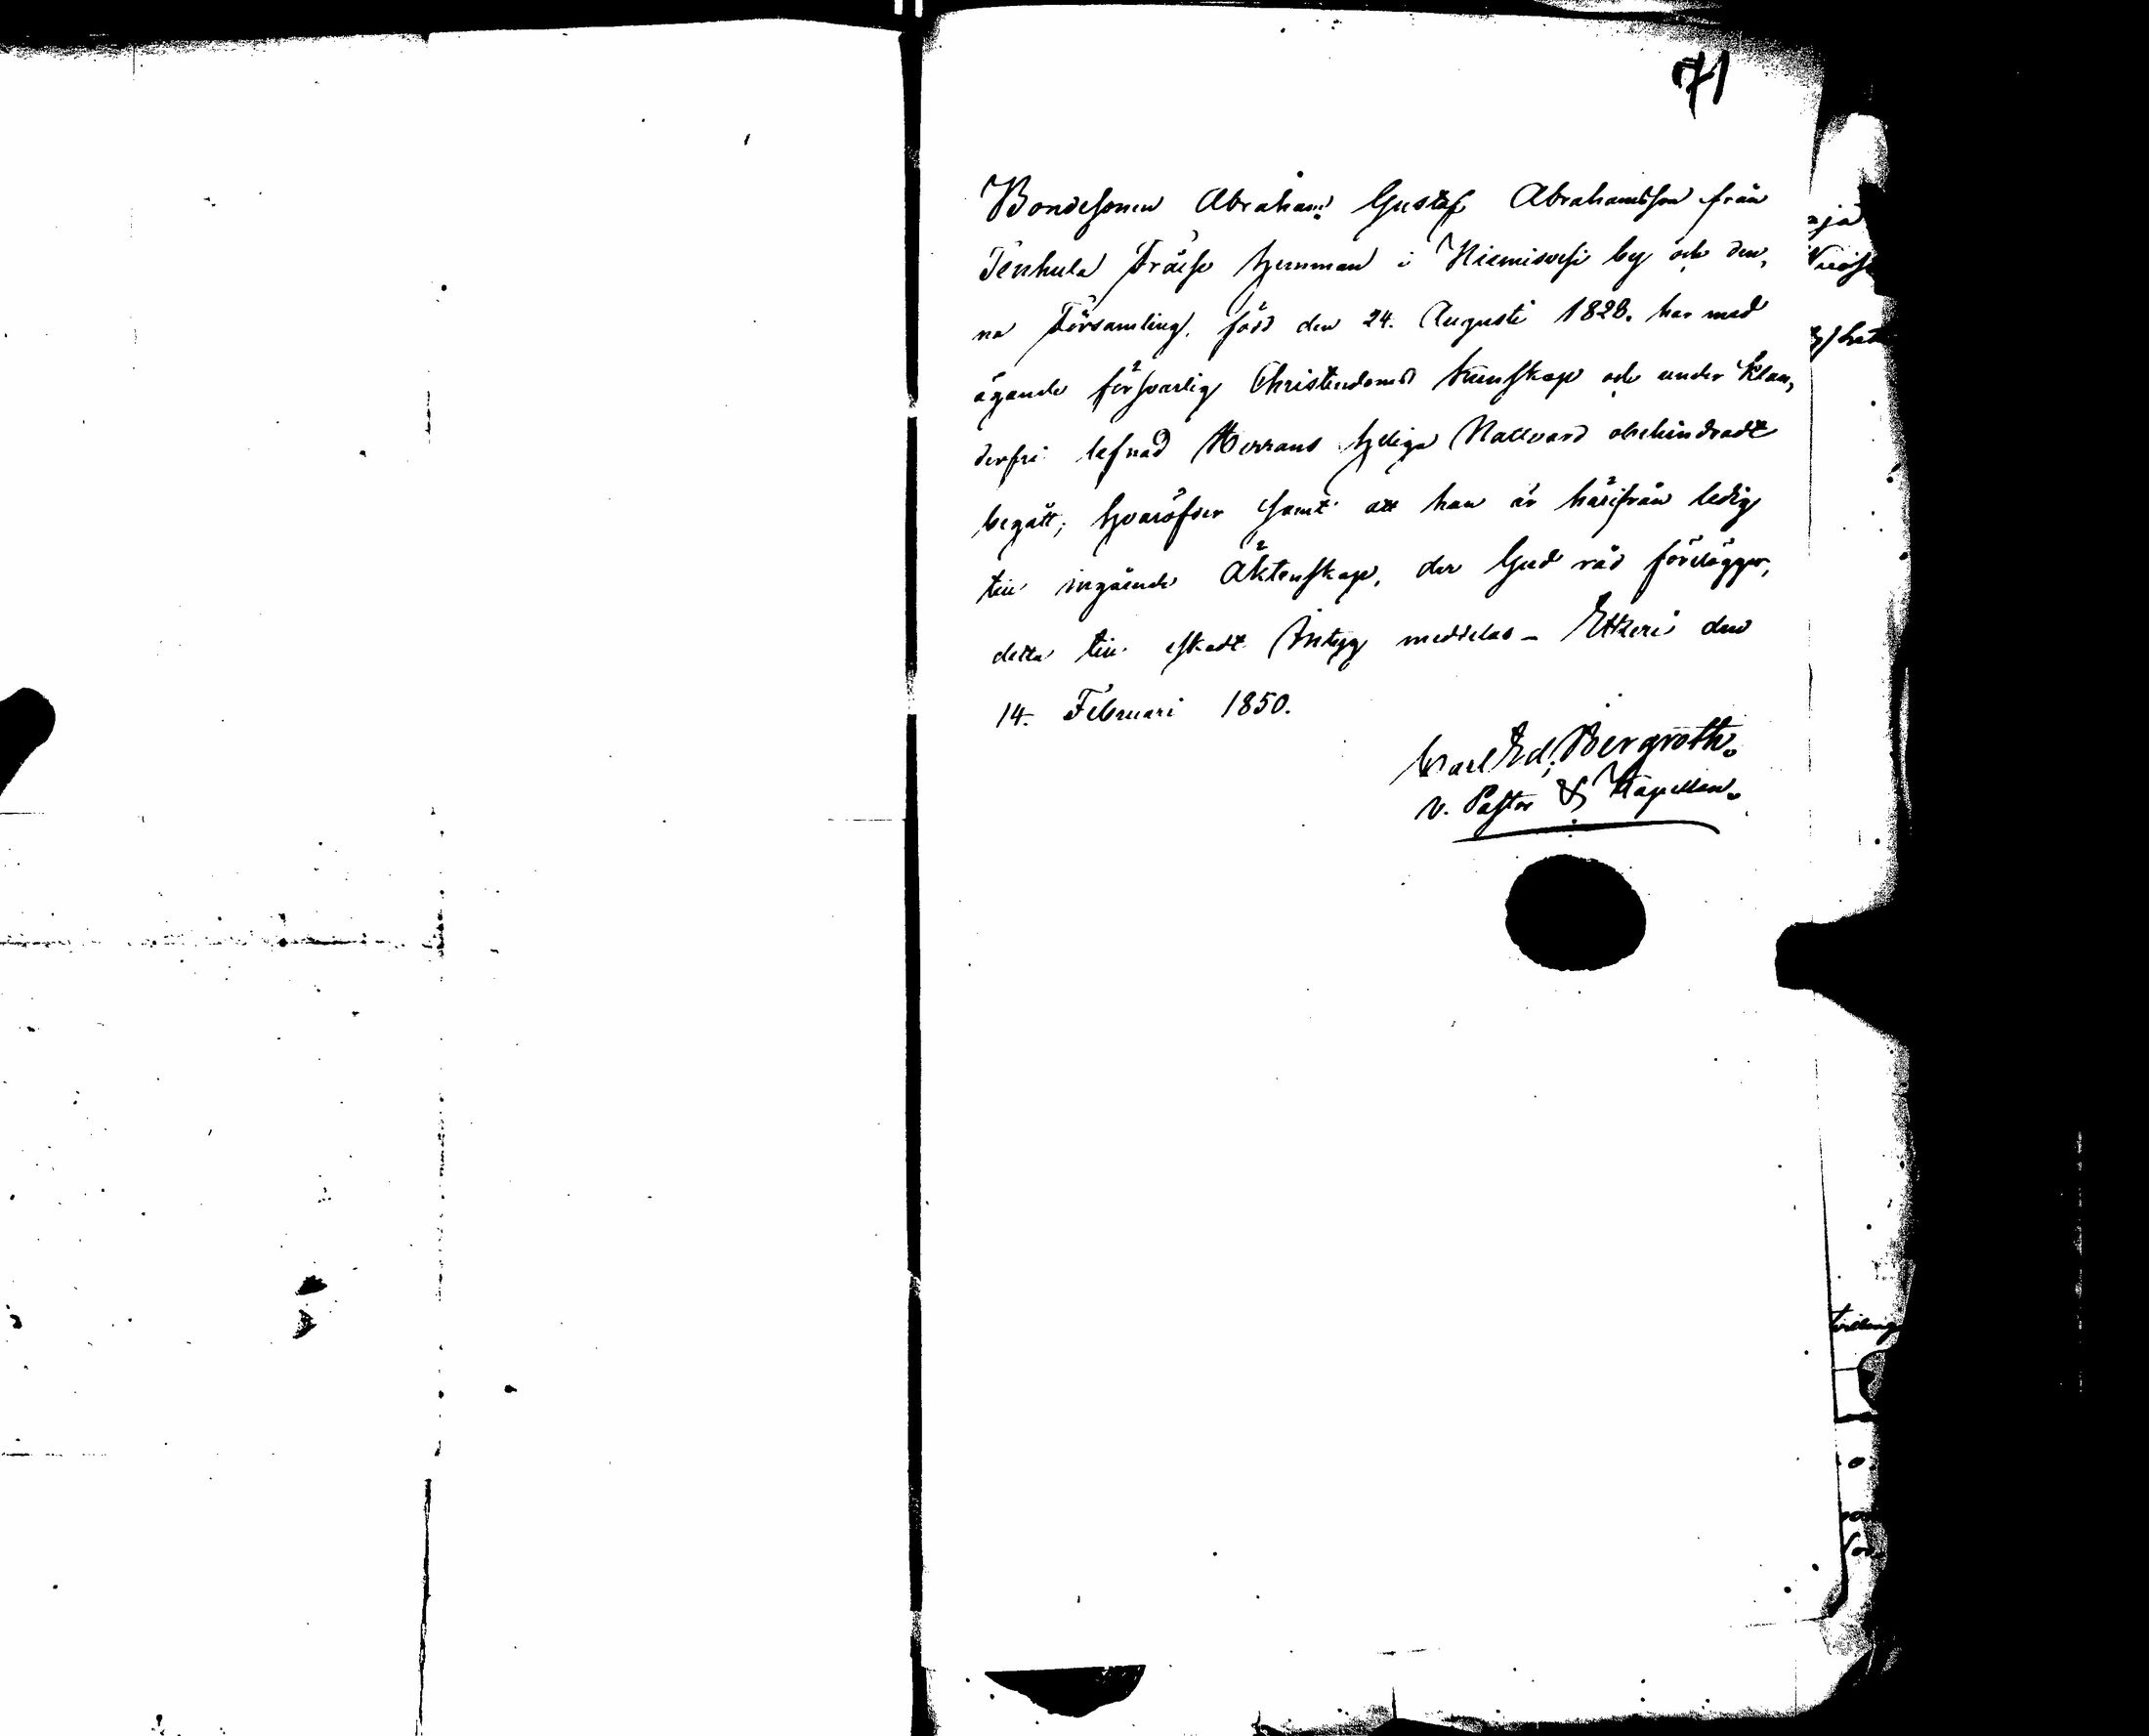 71
Bondesonen Abraham Gustaf Abrahamsson från
Tenhula Frälse hemman i Niemisvesi by och den,
na Församling, född den 24. Augusti 1828. har med
ägande försvarlig Christendoms kunskap och under klan,
derfri lefnad Herrans Heliga Nattvard obehindradt
begått; hvaröfver samt att han är härifrån ledig
till ingående Äktenskap, der Gud råd förelägger,
detta till äskadt Intyg meddelas – Etseri den
14. Februari 1850.
Carl Ed; Bergroth.
v. Pastor & Kapellan.